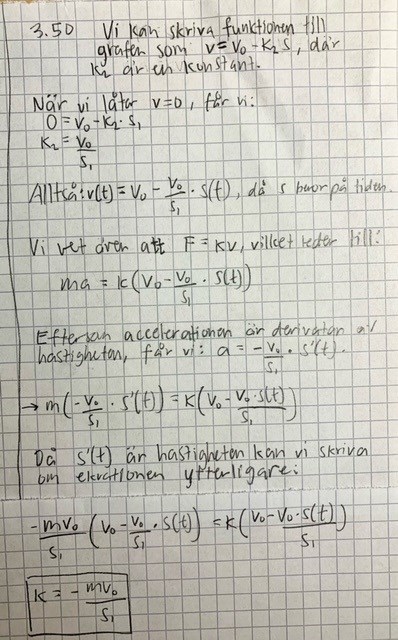 3.50 Vi kan skriva funktionen till
grafen som v = v₀ - k₂ s, där
k₂ är en konstant.
När vi låter v=0, får vi:
0 = v₀ - k₂ · s₁
k₂ = v₀/s₁
Alltså: v(t) = v₀ - v₀/s₁ · s(t), då s beror på tiden.
Vi vet även att F = kv, vilket leder till:
ma = k(v₀ - v₀/s₁ · s(t))
Eftersom accelerationen är derivatan av
hastigheten, får vi: a = -v₀/s₁ · s'(t).
→ m(-v₀/s₁ · s'(t)) = k(v₀ - v₀·s(t)/s₁)
Då s'(t) är hastigheten kan vi skriva
om ekvationen ytterligare:
-mv₀/s₁ (v₀ - v₀/s₁ · s(t)) = k(v₀ - v₀·s(t)/s₁)
k = - mv₀/s₁